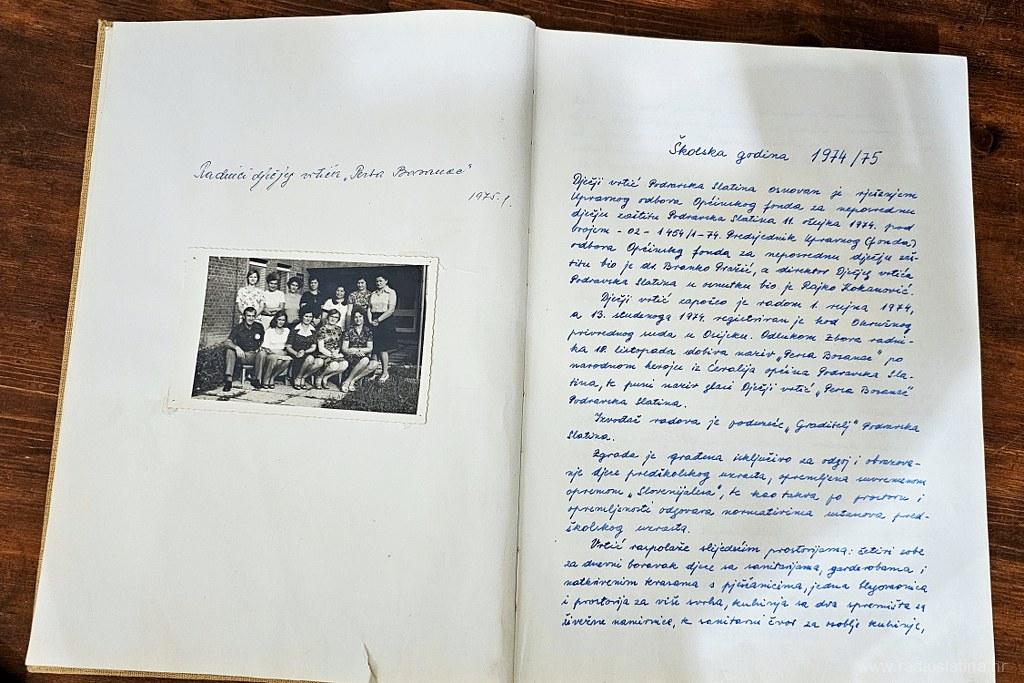 Radnici dječjeg vrtića „Perva Bosanac"
1975. g.
Školska godina 1974/75
Dječji vrtić Podravska Slatina osnovan je rješenjem
Upravnog odbora Općinskog fonda za neposrednu
dječju zaštitu Podravska Slatina 11. ožujka 1974. pod
brojem - 02 - 1454/1-74. Predsjednik Upravnog (fonda)
odbora Općinskog fonda za neposrednu dječju zaš-
titu bio je dr. Branko, a direktor Dječjeg vrtića
Podravska Slatina u osnutku bio je Rajko Kokanović.
Dječji vrtić započeo je radom 1. rujna 1974,
a 13. studenoga 1974. registriran je kod Okružnog
privrednog suda u Osijeku. Odlukom Zbora radni-
ka 18. listopada dobiva naziv „Perva Bosanac" po
narodnom heroju iz Ćeralija općina Podravska Sla-
tina, te puni naziv glasi Dječji vrtić „Perva Bosanac"
Podravska Slatina.
Izvođač radova je poduzeće „Graditelj" Podravska
Slatina.
Zgrada je građena isključivo za odgoj i obrazova-
nje djece predškolskog uzrasta, opremljena suvremenom
opremom „Slovenijales", te kao takva po prostoru i
opremljenosti odgovara normativima ustanova pred-
školskog uzrasta.
Vrtić raspolaže slijedećim prostorijama: četiri sobe
za dnevni boravak djece sa sanitarijama, garderobama i
natkrivenim terasama s pješčanicima, jedna blagovaonica
i prostorija za više svrha, kuhinja sa dva spremišta za
živežne namirnice, te sanitarni čvor za osoblje kuhinje,
www.radioslatina.hr